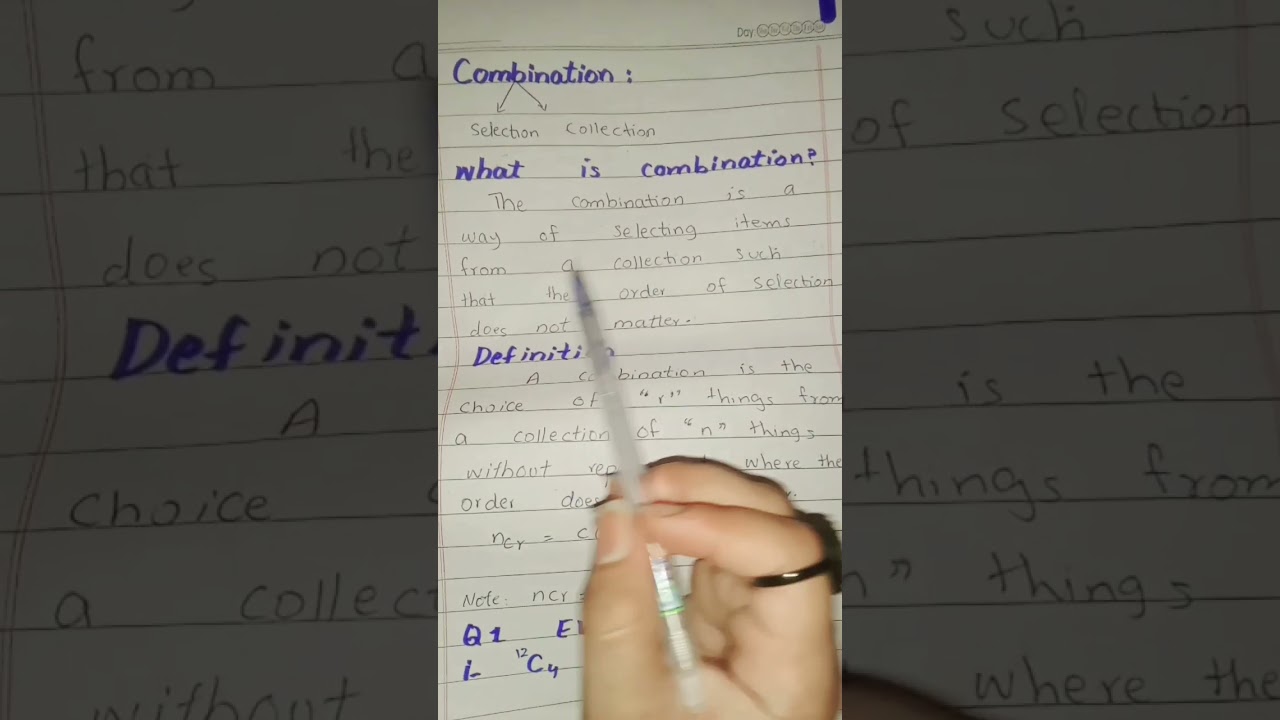 Day
Combination :
Selection Collection
What is combination?
The combination is a
way of selecting items
from a collection such
that the order of selection
does not matter.
Definition
A combination is the
choice of "r" things from
a collection of "n" things
without where the
order does
nCr =
Note: nCr =
Q1
i- ¹²C₄